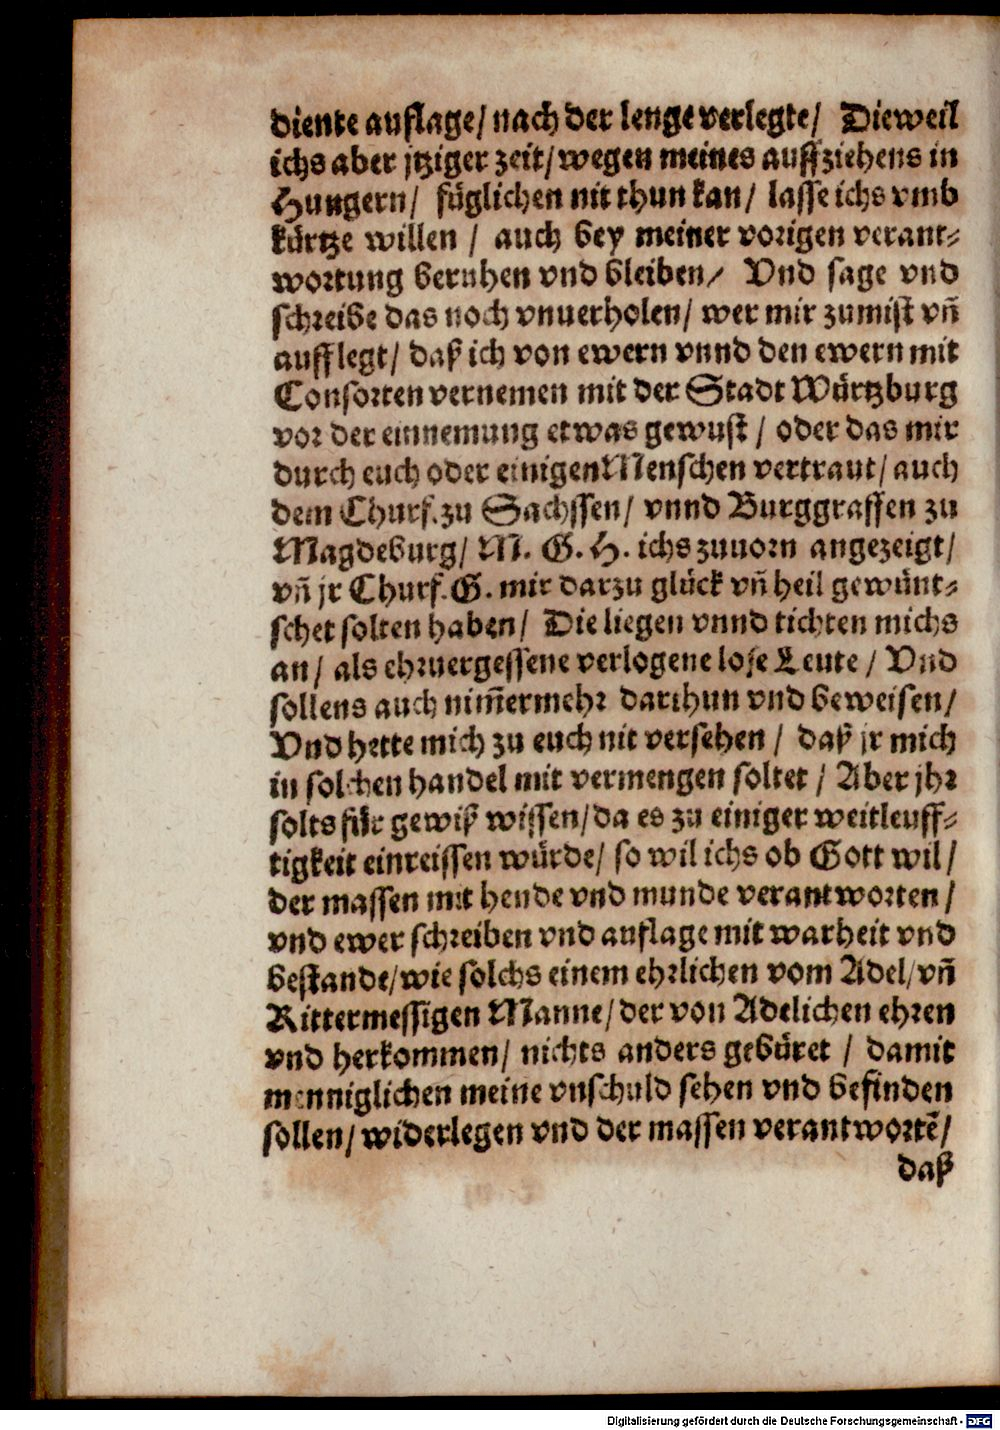 diente auflage/ nach der lenge verlegte/ Dieweil
ichs aber jtziger zeit/ wegen meines auffziehens in
Hungern/ füglichen nit thun kan/ lasse ichs vmb
kürtze willen / auch bey meiner vorigen verant⸗
wortung beruhen vnd bleiben/ Vnd sage vnd
schreibe das noch vnuerholen/ wer mir zumist vñ
aufflegt/ daß ich von ewern vnnd den ewern mit
Consorten vernemen mit der Stadt Würtzburg
vor der einnemung etwas gewust / oder das mir
durch euch oder einigen Menschen vertraut/ auch
dem Churf. zu Sachssen/ vnnd Burggraffen zu
Magdeburg/ M. G. H. ichs zuuorn angezeigt/
vñ jr Churf. G. mir darzu glück vñ heil gewünt⸗
schet solten haben/ Die liegen vnnd tichten michs
an/ als ehruergessene verlogene lose Leute / Vnd
sollens auch nim̃ermehr darthun vnd beweisen/
Vnd hette mich zu euch nit versehen / daß jr mich
in solchen handel mit vermengen soltet / Aber jhr
solts für gewiß wissen/ da es zu einiger weitleuff⸗
tigkeit einreissen würde/ so wil ichs ob Gott wil/
der massen mit hende vnd munde verantworten/
vnd ewer schreiben vnd auflage mit warheit vnd
bestande/ wie solchs einem ehrlichen vom Adel/ vñ
Rittermessigen Manne/ der von Adelichen ehren
vnd herkommen/ nichts anders gebüret / damit
menniglichen meine vnschuld sehen vnd befinden
sollen/ widerlegen vnd der massen verantwortẽ/
daß
Digitalisierung gefördert durch die Deutsche Forschungsgemeinschaft - DFG